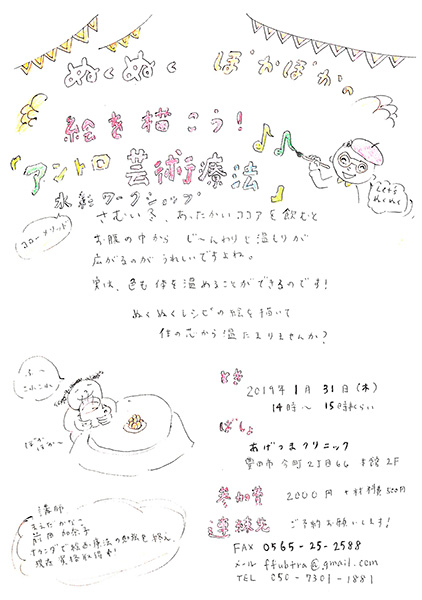 ぬくぬく ぽかぽかの
絵を描こう!
『アントロ 芸術療法』
水彩ワークショップ
Let's
ぬくぬく
さむい冬、あったかいココアを飲むと
お腹の中から じ〜んわりと温もりが
広がるのがうれしいですよね。
実は、色も体を温めることができるのです!
ぬくぬくレシピの絵を描いて
体の芯から温たまりませんか?
とき
2019年 1月 31日(木)
14時〜 15時半くらい
ばしょ
あげつまクリニック
豊田市 今町 2丁目66 本館 2F
参加費 2000円 +材料費500円
連絡先 ご予約お願いします!
FAX 0565-25-2588
メール ffubtra@gmail.com
TEL 050-7301-1881
ぽか
ぽか〜
講師
まえだ かなこ
前田 加奈子
オランダで絵画療法の勉強を終え、